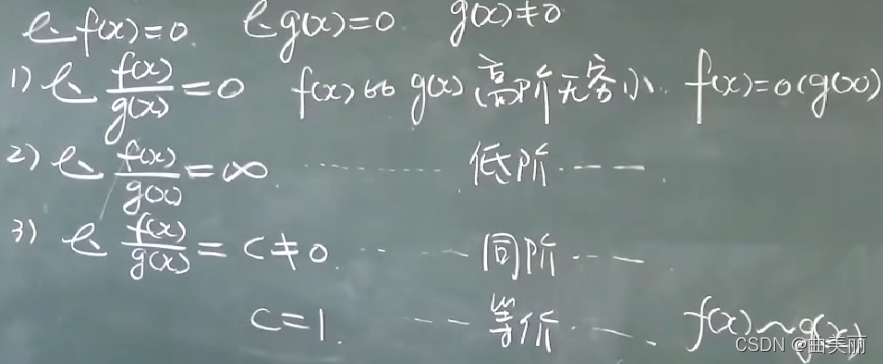 lim f(x)=0. lim g(x)=0 g(x)≠0
1) lim f(x)/g(x)=0 f(x)比g(x)高阶无穷小. f(x)=o(g(x))
2) lim f(x)/g(x)=∞. ...... 低阶 ......
3) lim f(x)/g(x)=C≠0. ...... 同阶 ......
C=1. ...... 等价 ...... f(x)~g(x)
CSDN @曲美丽